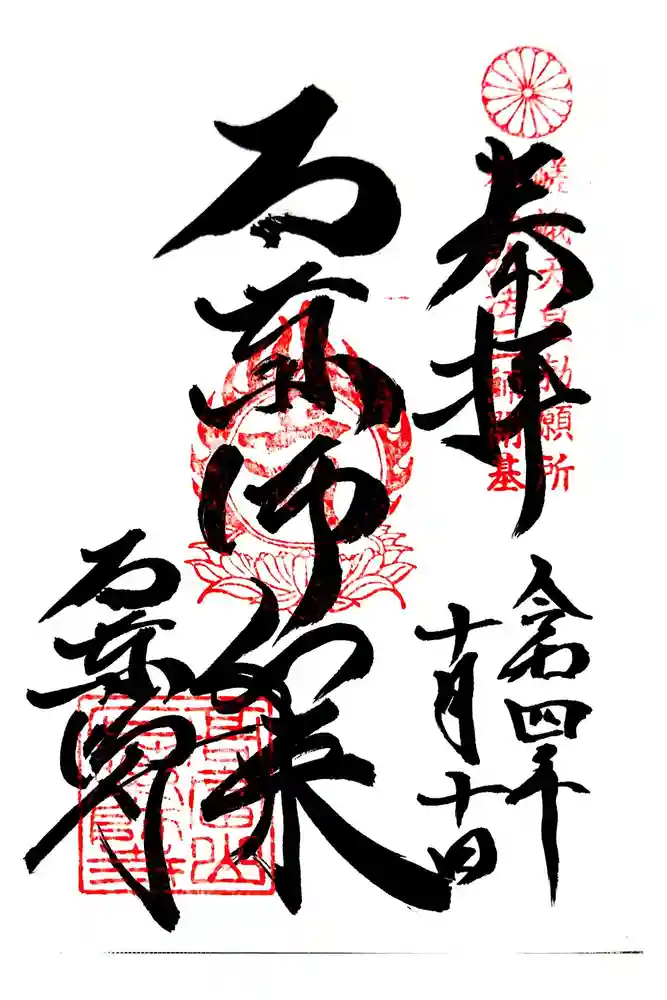 奉拝
嵯峨天皇勅願所
弘法大師開基
令和四年
十月十日
石薬師如来
石薬師寺